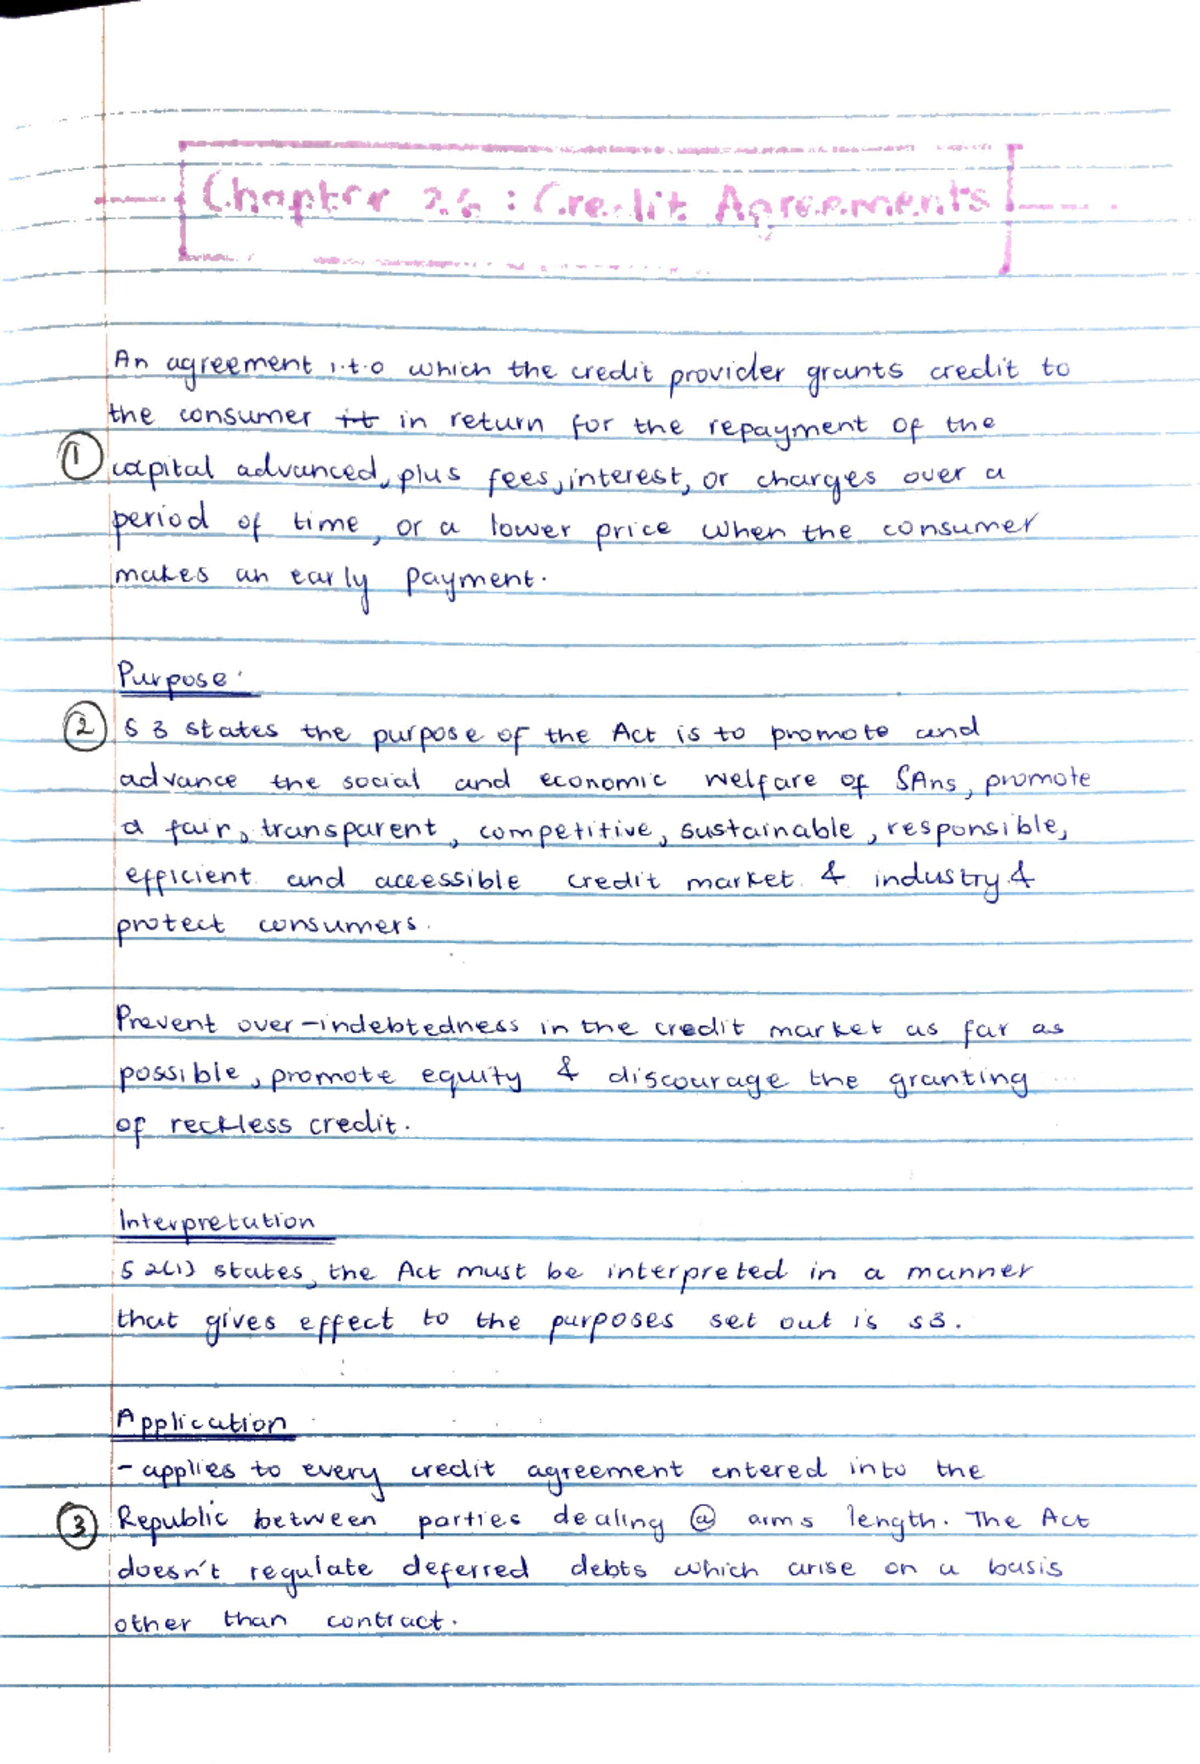 Chapter 26 : Credit Agreements
An agreement i.t.o which the credit provider grants credit to
the consumer it in return for the repayment of the
① capital advanced, plus fees, interest, or charges over a
period of time, or a lower price when the consumer
makes an early payment.
Purpose
② S 3 states the purpose of the Act is to promote and
advance the social and economic welfare of SAns, promote
a fair, transparent, competitive, sustainable, responsible,
efficient and accessible credit market & industry &
protect consumers.
Prevent over-indebtedness in the credit market as far as
possible, promote equity & discourage the granting
of reckless credit.
Interpretation
S 2(1) states, the Act must be interpreted in a manner
that gives effect to the purposes set out is s3.
Application
- applies to every credit agreement entered into the
③ Republic between parties dealing @ arms length. The Act
doesn't regulate deferred debts which arise on a basis
other than contract.